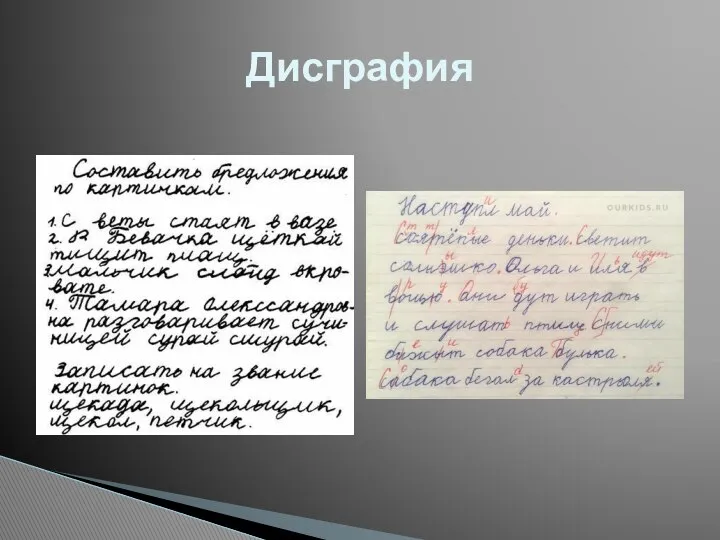 Дисграфия
Составить бредложения
по картинкам.
1. С веты стаят в вазе
2. Бевачка щёткай
тищит плащ.
3. Мальчик слоид окро-
вате.
4. Тамара Олекссандров-
на разговаривает сучи-
ницей сурай смурай.
Записать на звание
картинок.
щекада, щекольщик,
щекол, петчик.
OURKIDS.RU
Наступл май.
деньки. Светит
Ольга и Иля в
Они дут играть
и слушать птиц
собака Булька.
бегал за кастрюля.